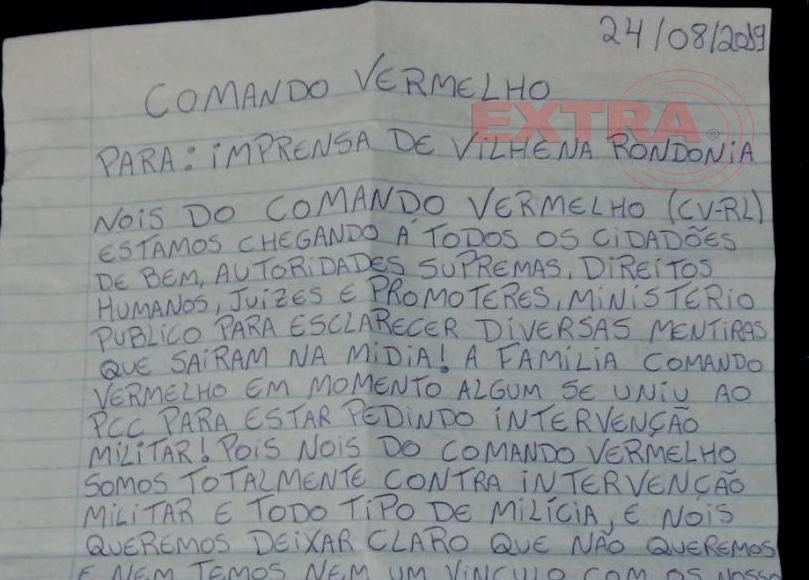 24/08/2019
COMANDO VERMELHO
EXTRA
PARA: IMPRENSA DE VILHENA RONDONIA
NOIS DO COMANDO VERMELHO (CV-RL)
ESTAMOS CHEGANDO A TODOS OS CIDADÕES
DE BEM, AUTORIDADES SUPREMAS, DIREITOS
HUMANOS, JUIZES E PROMOTERES, MINISTERIO
PUBLICO PARA ESCLARECER DIVERSAS MENTIRAS
QUE SAIRAM NA MIDIA! A FAMÍLIA COMANDO
VERMELHO EM MOMENTO ALGUM SE UNIU AO
PCC PARA ESTAR PEDINDO INTERVENÇÃO
MILITAR! POIS NOIS DO COMANDO VERMELHO
SOMOS TOTALMENTE CONTRA INTERVENÇÃO
MILITAR E TODO TIPO DE MILÍCIA, E NOIS
QUEREMOS DEIXAR CLARO QUE NÃO QUEREMOS
E NEM TEMOS NEM UM VINCULO COM OS NOSSO